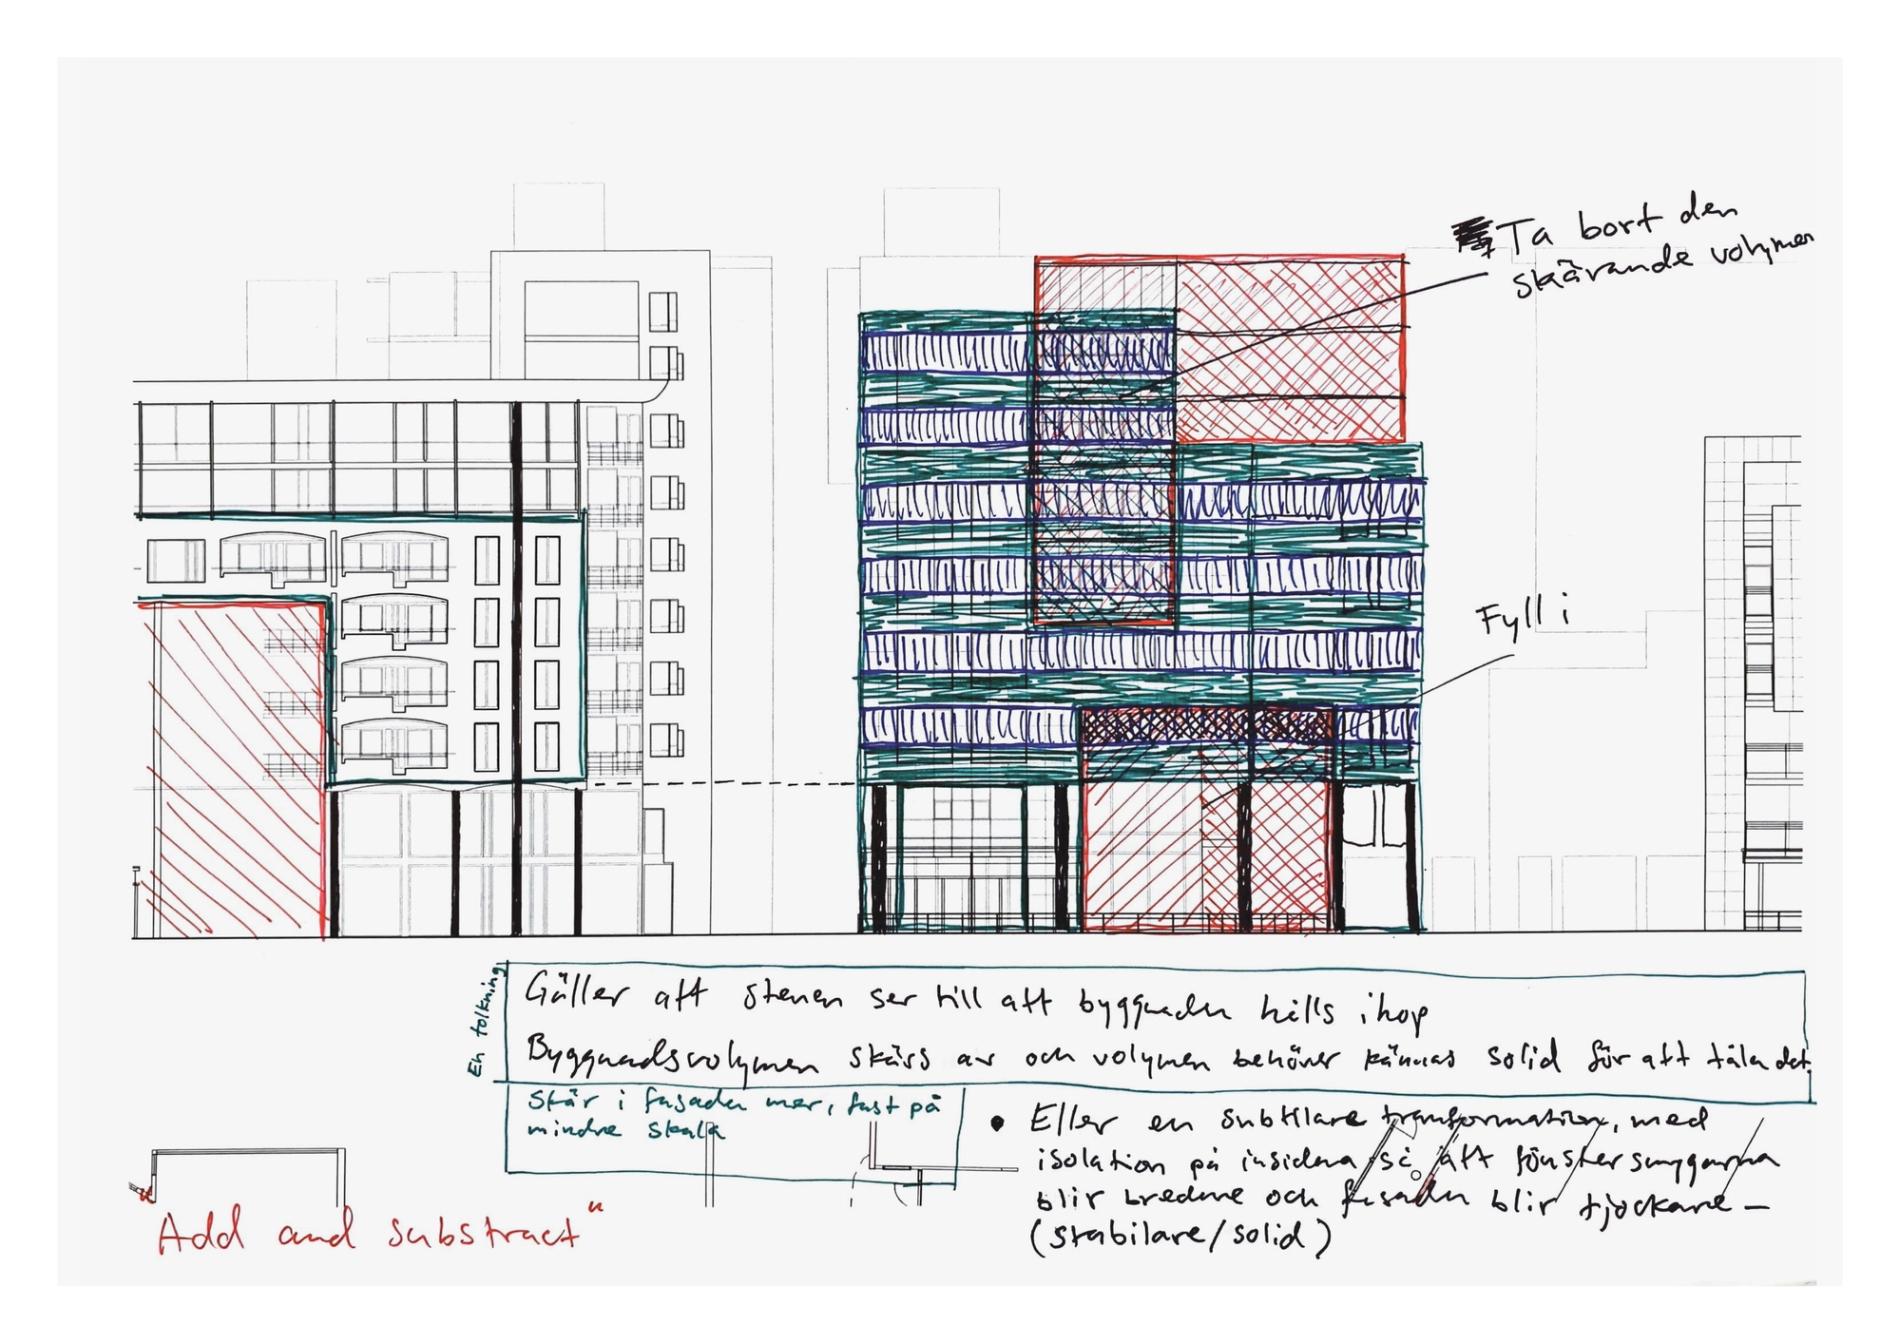 Ta bort den
skärande volymen
Fyll i
En tolkning
Gäller att stenen ser till att byggnaden hålls ihop
Byggnadsvolymen skärs av och volymen behöver kännas solid för att tåla det.
Skär i fasaden mer, fast på
mindre skala
• Eller en subtilare tranformation, med
isolation på insidena så att fönstersmygarna
blir bredare och fasaden blir tjockare –
(stabilare/solid)
"Add and substract"